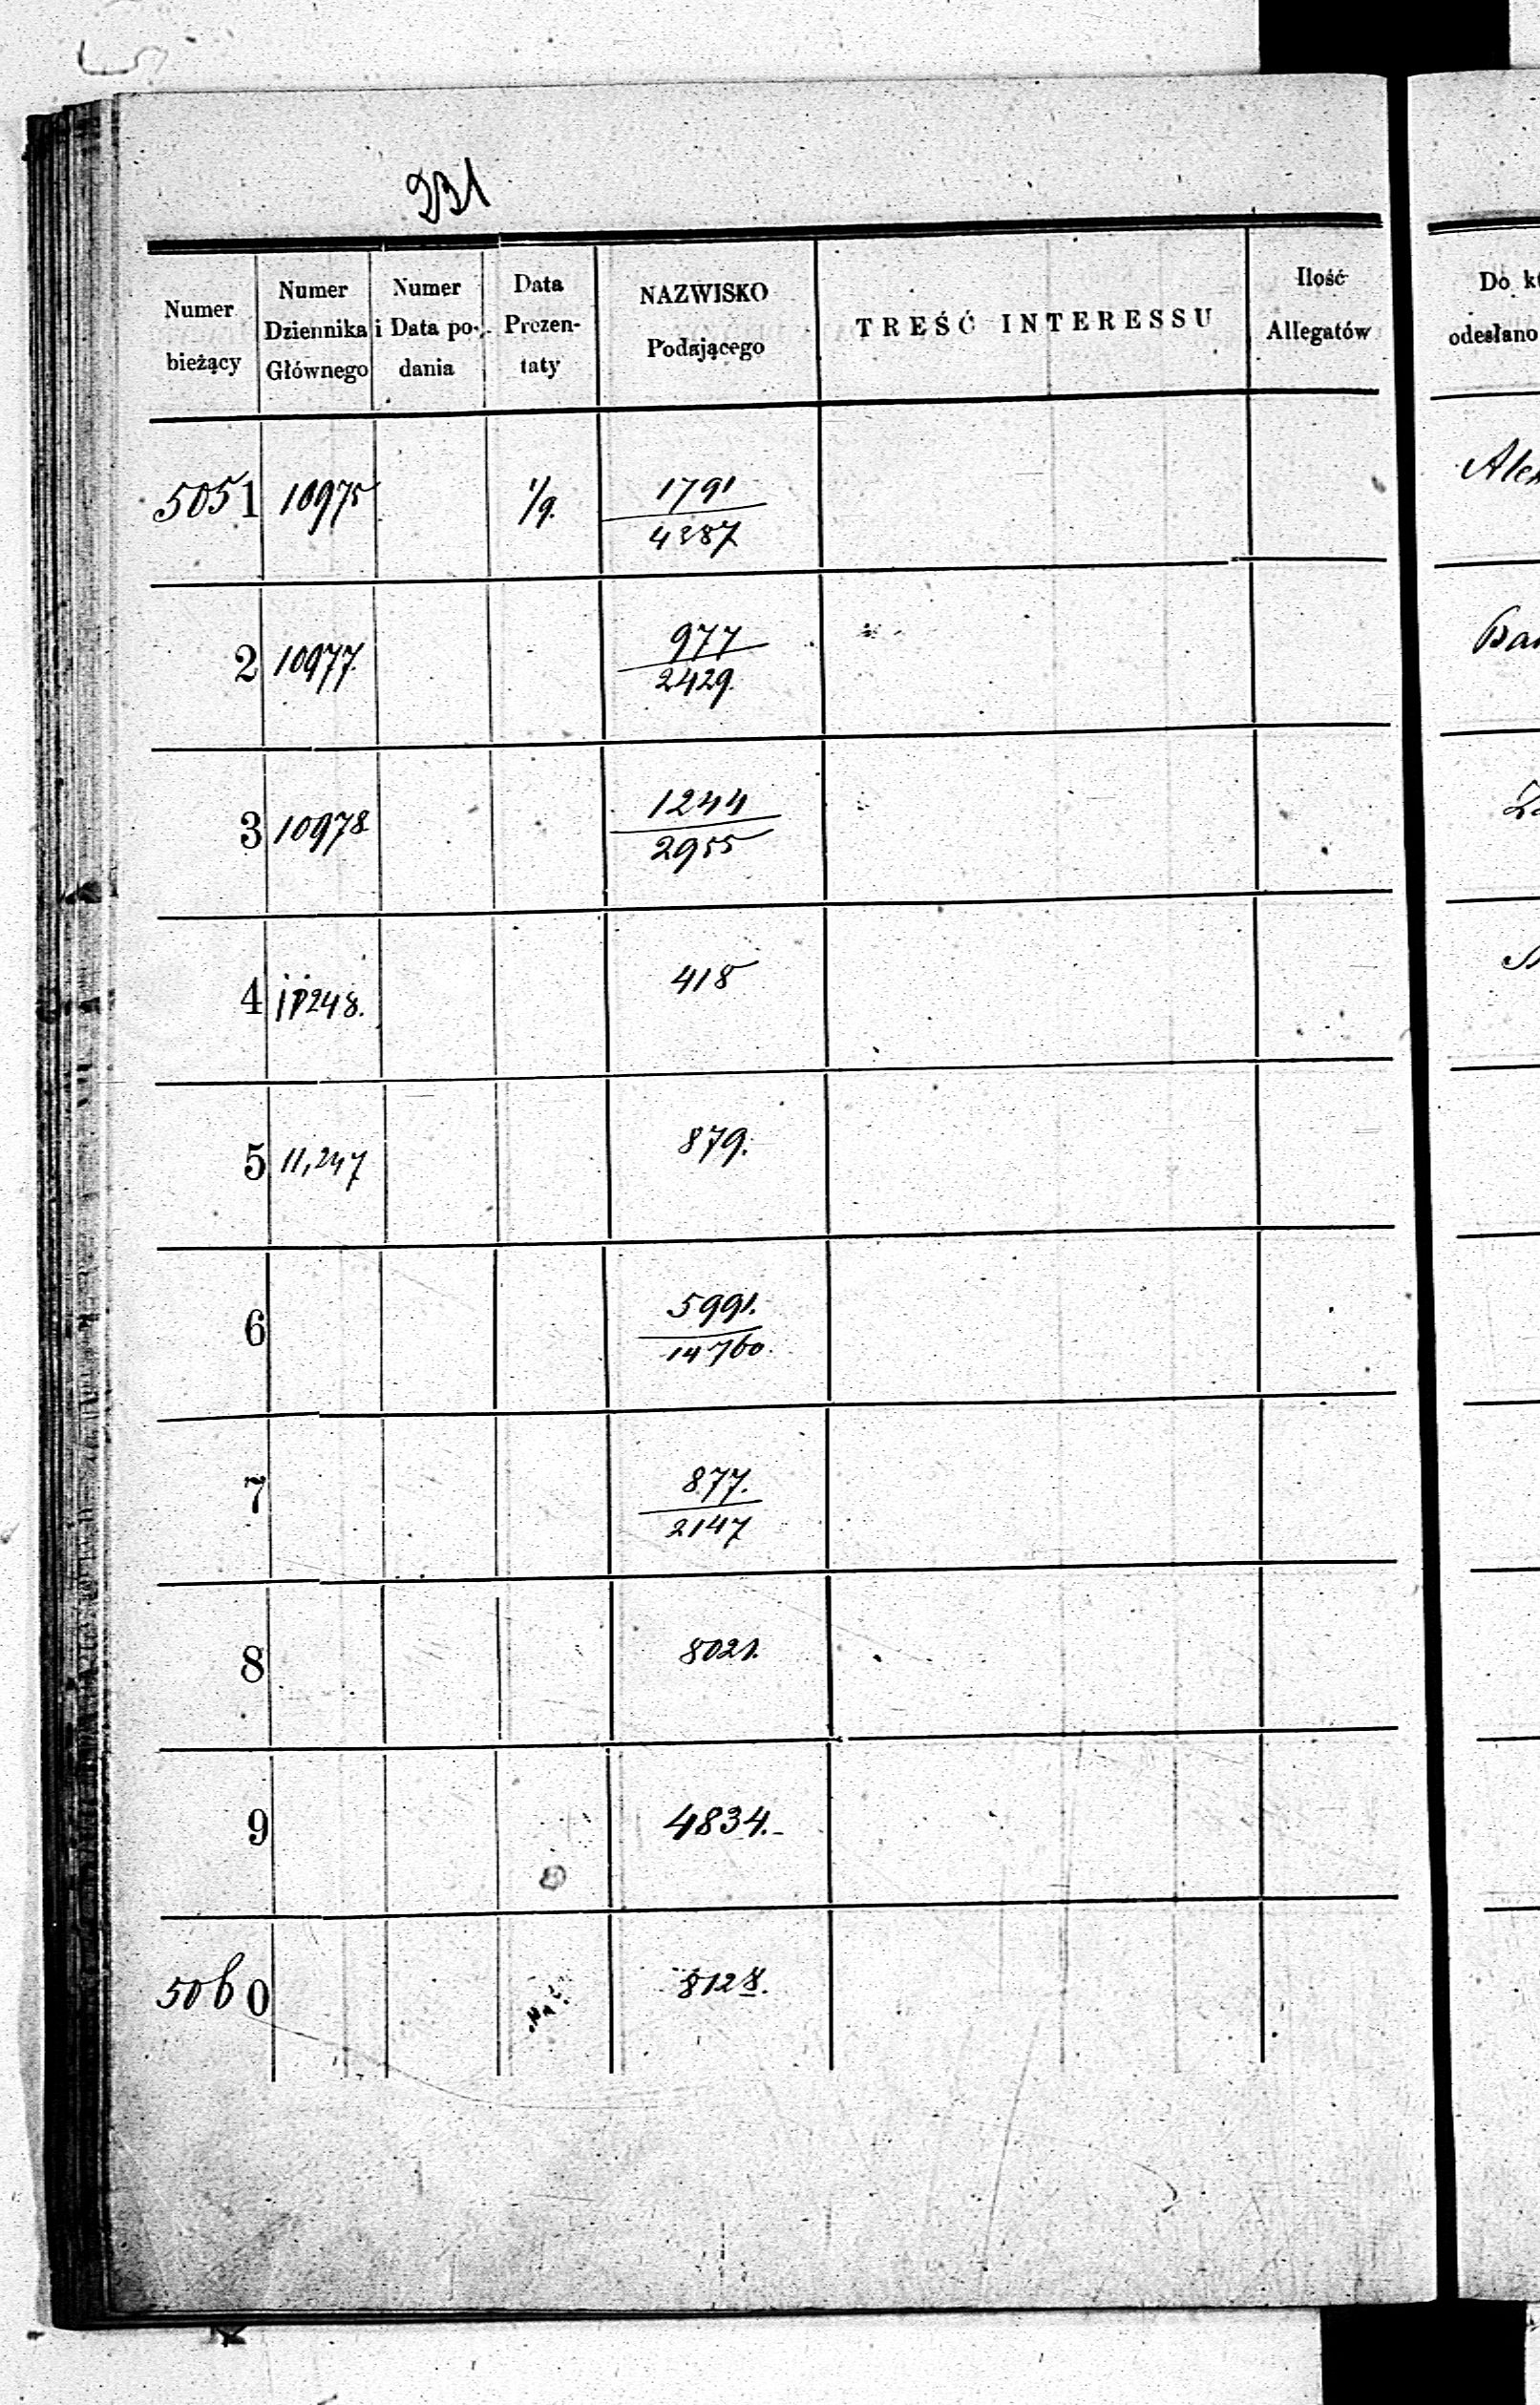 231
Numer bieżący
Numer Dziennika Głównego
Numer i Data podania
Data Prezentaty
NAZWISKO Podającego
TREŚĆ INTERESSU
Ilość Allegatów
5051 10975 1/9. 1791
4387
2 10977 977
2429.
3 10978 1244
2955
4 11248. 418
5 11,247 879.
6 5991.
14760.
7 877.
2147
8 8021.
9 4834.
5060 8128.
Do
odesłano